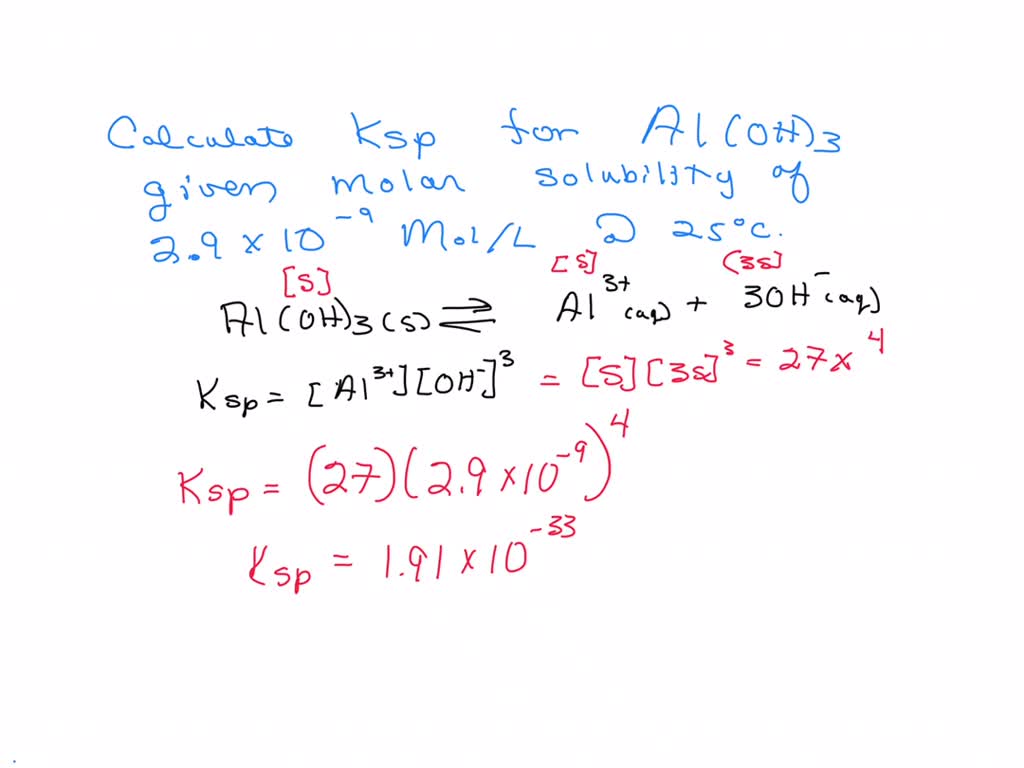 Calculate Ksp for Al(OH)3
given molar solubility of
2.9 × 10⁻⁹ Mol/L @ 25°C.
[S] [S] (3s]
Al(OH)3(s) ⇌ Al³⁺(aq) + 3OH⁻(aq)
Ksp = [Al³⁺][OH⁻]³ = [S][3s]³ = 27x⁴
Ksp = (27)(2.9×10⁻⁹)⁴
Ksp = 1.91×10⁻³³